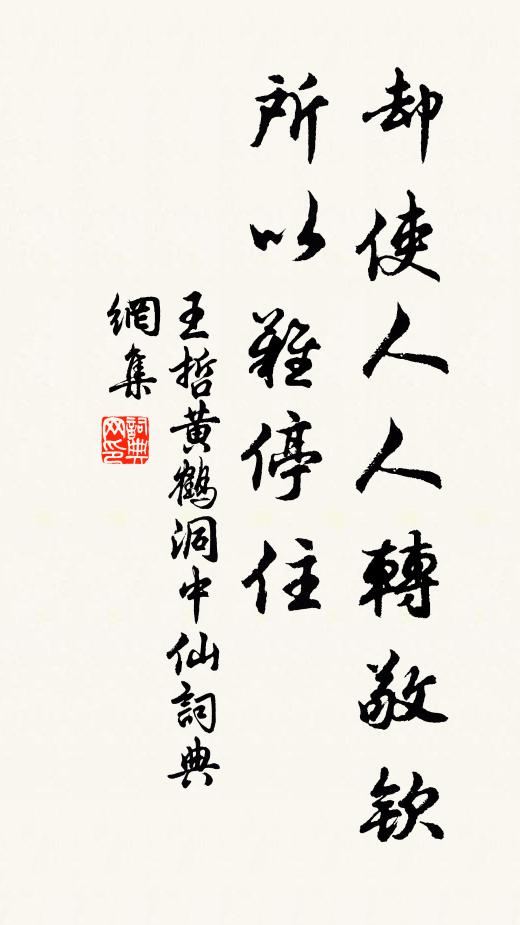 却使人人轉敬欽
所以難停住
王哲黃鶴洞中仙詞典
網集
詞典
网印